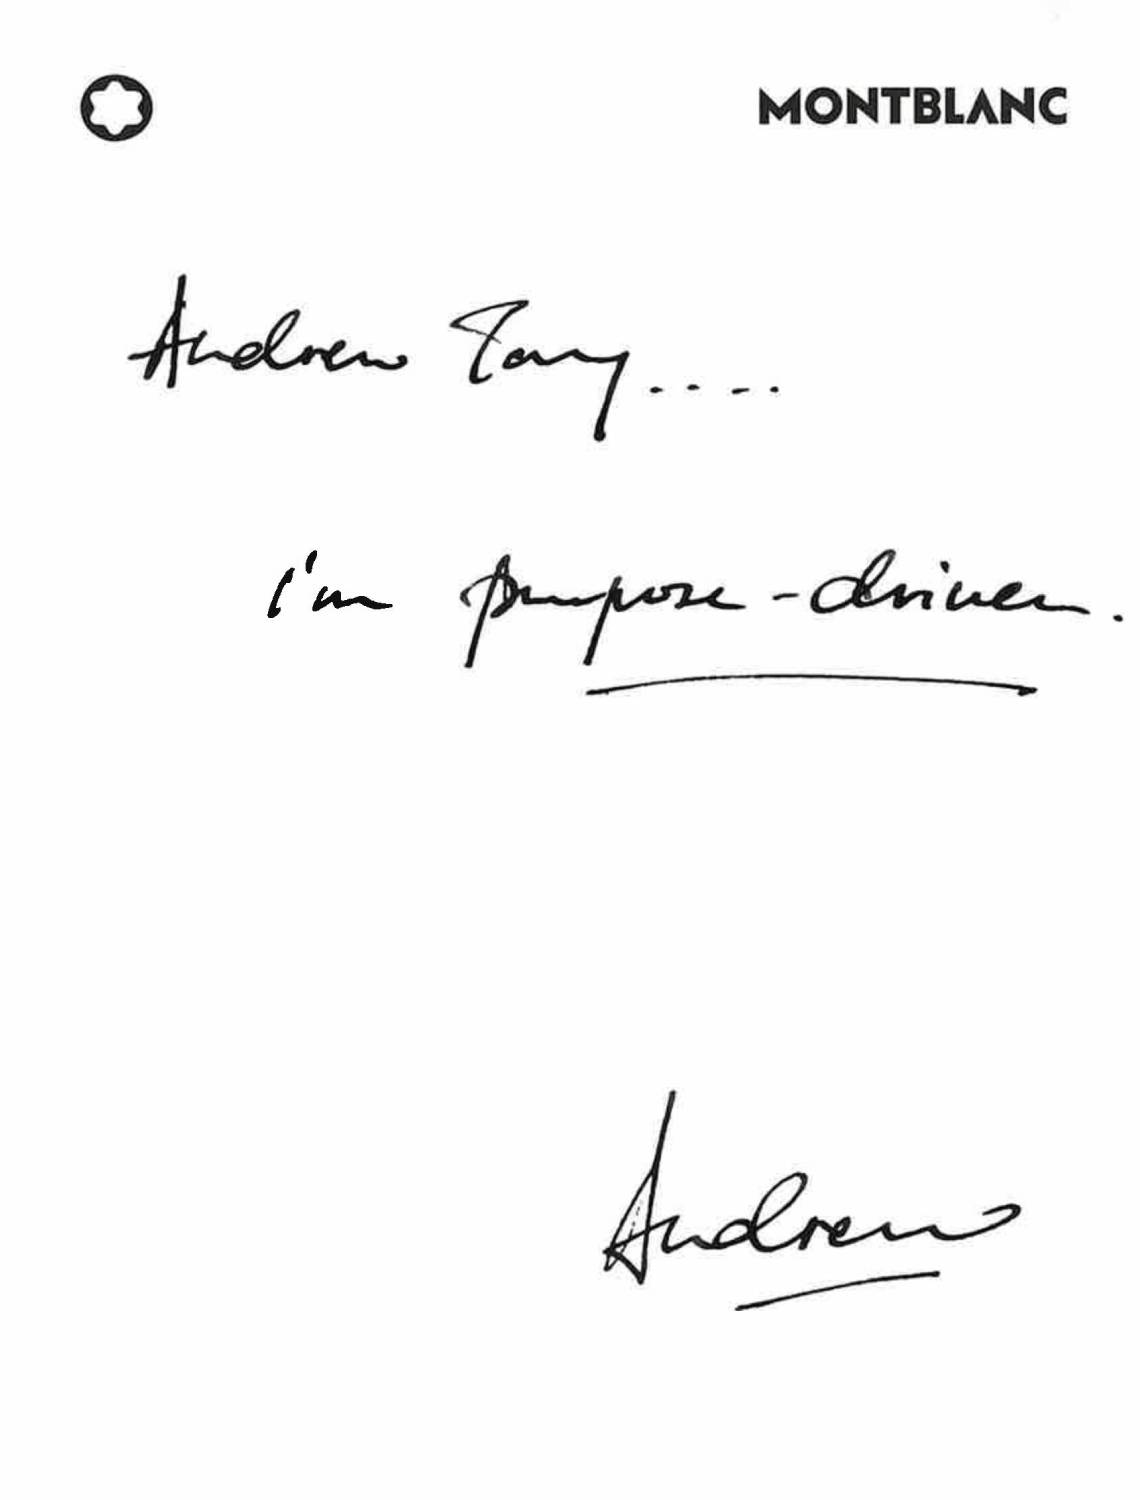 MONTBLANC
Andrew Tang....
I'm purpose-driven.
Andrew